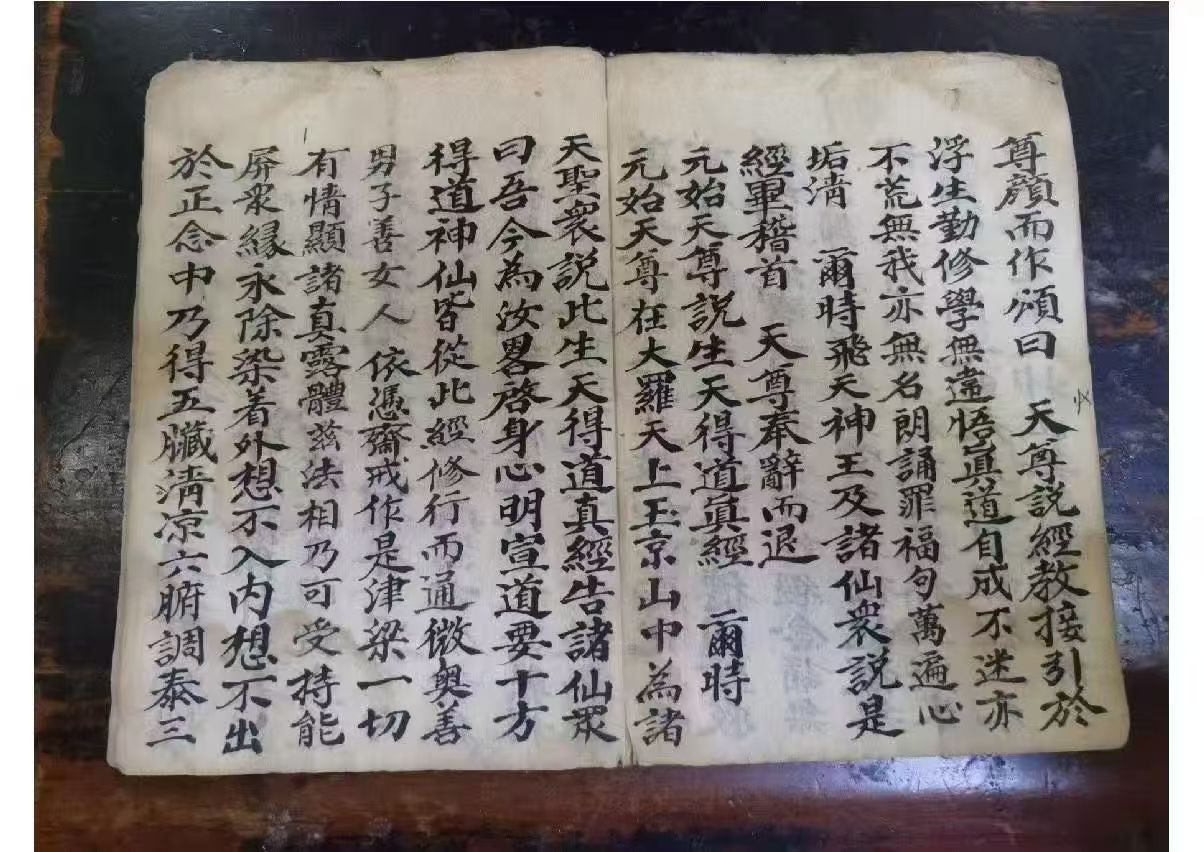 尊顏而作頌曰　天尊説經教接引於
浮生勤修學無違悟眞道自成不迷亦
不荒無我亦無名朗誦罪福句萬遍心
垢清　爾時飛天神王及諸仙衆説是
經畢稽首　天尊奉辭而退
元始天尊説生天得道眞經　爾時
元始天尊在大羅天上玉京山中為諸
天聖衆説此生天得道真經告諸仙眾
曰吾今為汝畧啓身心明宣道要十方
得道神仙皆從此經修行而通微奥善
男子善女人　依憑齋戒作是津梁一切
有情顯諸真露體兹法相乃可受持能
屏衆縁永除染着外想不入内想不出
於正念中乃得五臟清凉六腑調泰三